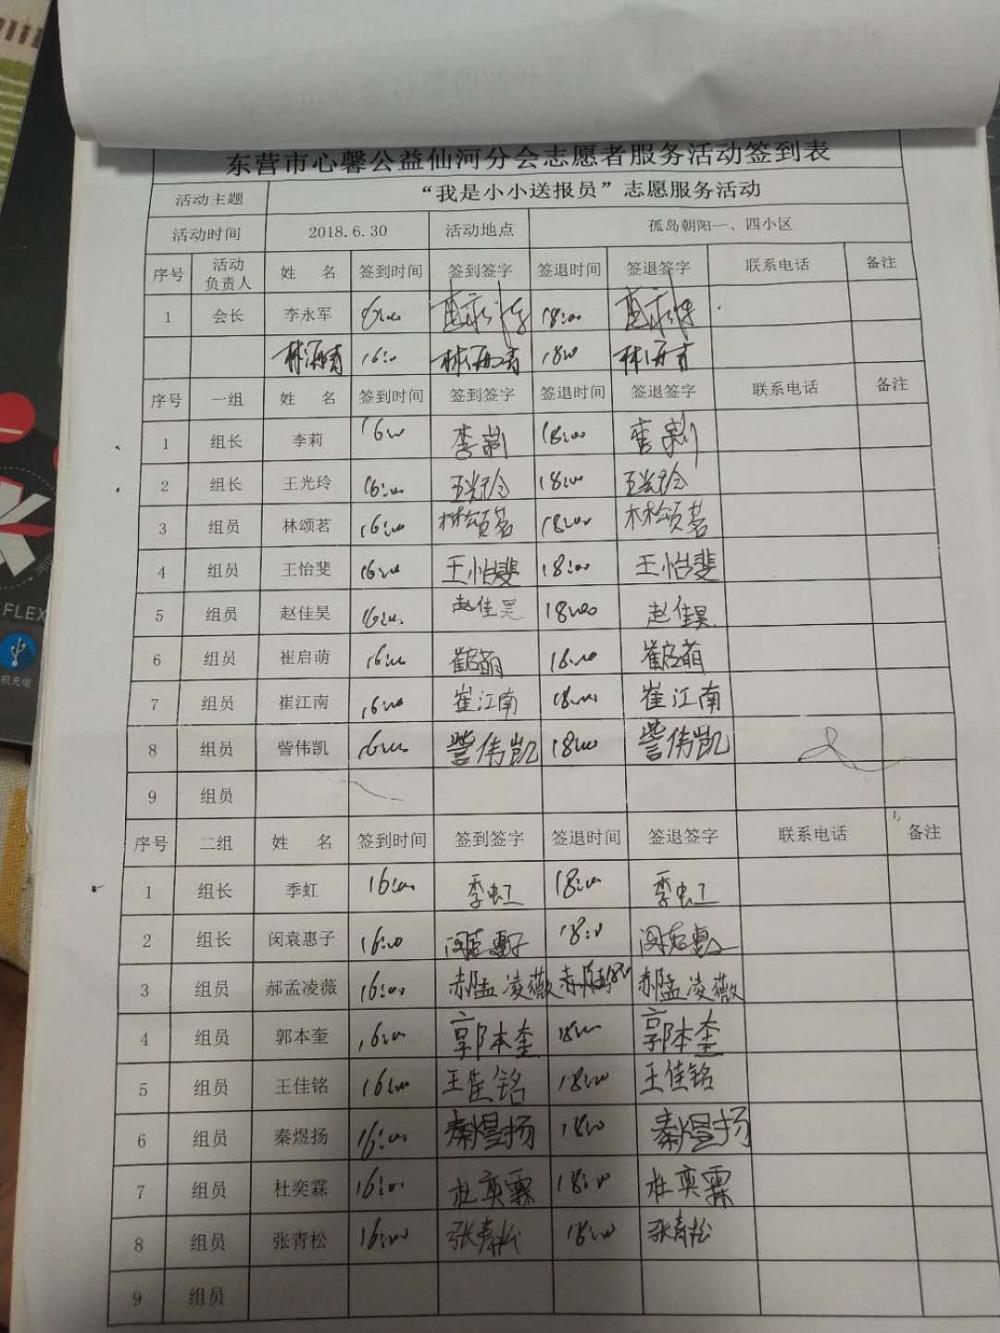 东营市心馨公益仙河分会志愿者服务活动签到表
活动主题 “我是小小送报员”志愿服务活动
活动时间 2018.6.30 活动地点 孤岛朝阳一、四小区
序号 活动负责人 姓 名 签到时间 签到签字 签退时间 签退签字 联系电话 备注
1 会长 李永军 18:00
林海青 16:0 林海青 18:00 林海青
序号 一组 姓 名 签到时间 签到签字 签退时间 签退签字 联系电话 备注
1 组长 李莉 16:00 李莉 18:00 李莉
2 组长 王光玲 16:00 王光玲 18:00 王光玲
3 组员 林颂茗 16:00 林颂茗 18:00 林颂茗
4 组员 王怡斐 16:00 王怡斐 18:00 王怡斐
5 组员 赵佳昊 16:00 赵佳昊 18:00 赵佳昊
6 组员 崔启萌 16:00 崔启萌 18:00 崔启萌
7 组员 崔江南 16:00 崔江南 18:00 崔江南
8 组员 訾伟凯 16:00 訾伟凯 18:00 訾伟凯
9 组员
序号 二组 姓 名 签到时间 签到签字 签退时间 签退签字 联系电话 备注
1 组长 季虹 16:00 季虹 18:00 季虹
2 组长 闵袁惠子 16:00 闵袁惠子 18:0 闵袁惠子
3 组员 郝孟凌薇 16:00 郝孟凌薇 郝孟凌薇
4 组员 郭本奎 16:00 郭本奎 18:00 郭本奎
5 组员 王佳铭 16:00 王佳铭 18:00 王佳铭
6 组员 秦煜扬 16:00 秦煜扬 18:00 秦煜扬
7 组员 杜奕霖 16:00 杜奕霖 18:00 杜奕霖
8 组员 张青松 16:00 张青松 18:00 张青松
9 组员
FLEX